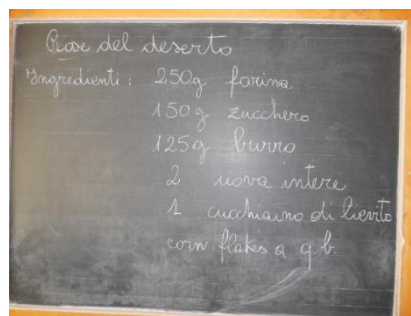 Rose del deserto
Ingredienti: 250g farina
150g zucchero
125g burro
2 uova intere
1 cucchiaino di lievito
corn flakes a q.b.